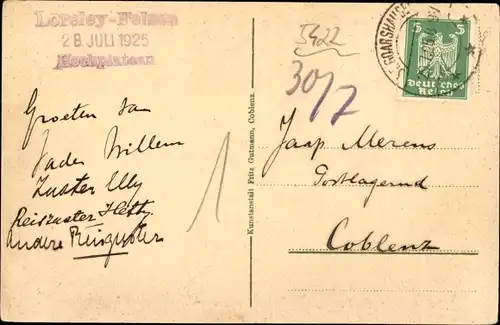 Loreley-Felsen
28 JULI 1925
Hochplateau
Groeten van
Vader Willem
Zuster Elly
Reiszuster Hetty.
Andere Reiszuster
1
Kunstanstalt Fritz Gutmann, Coblenz.
5422
30/7
ST. GOARSHAUSEN
5 5
Deutsches
Reich
Jaap Merens
Postlagernd
Coblenz